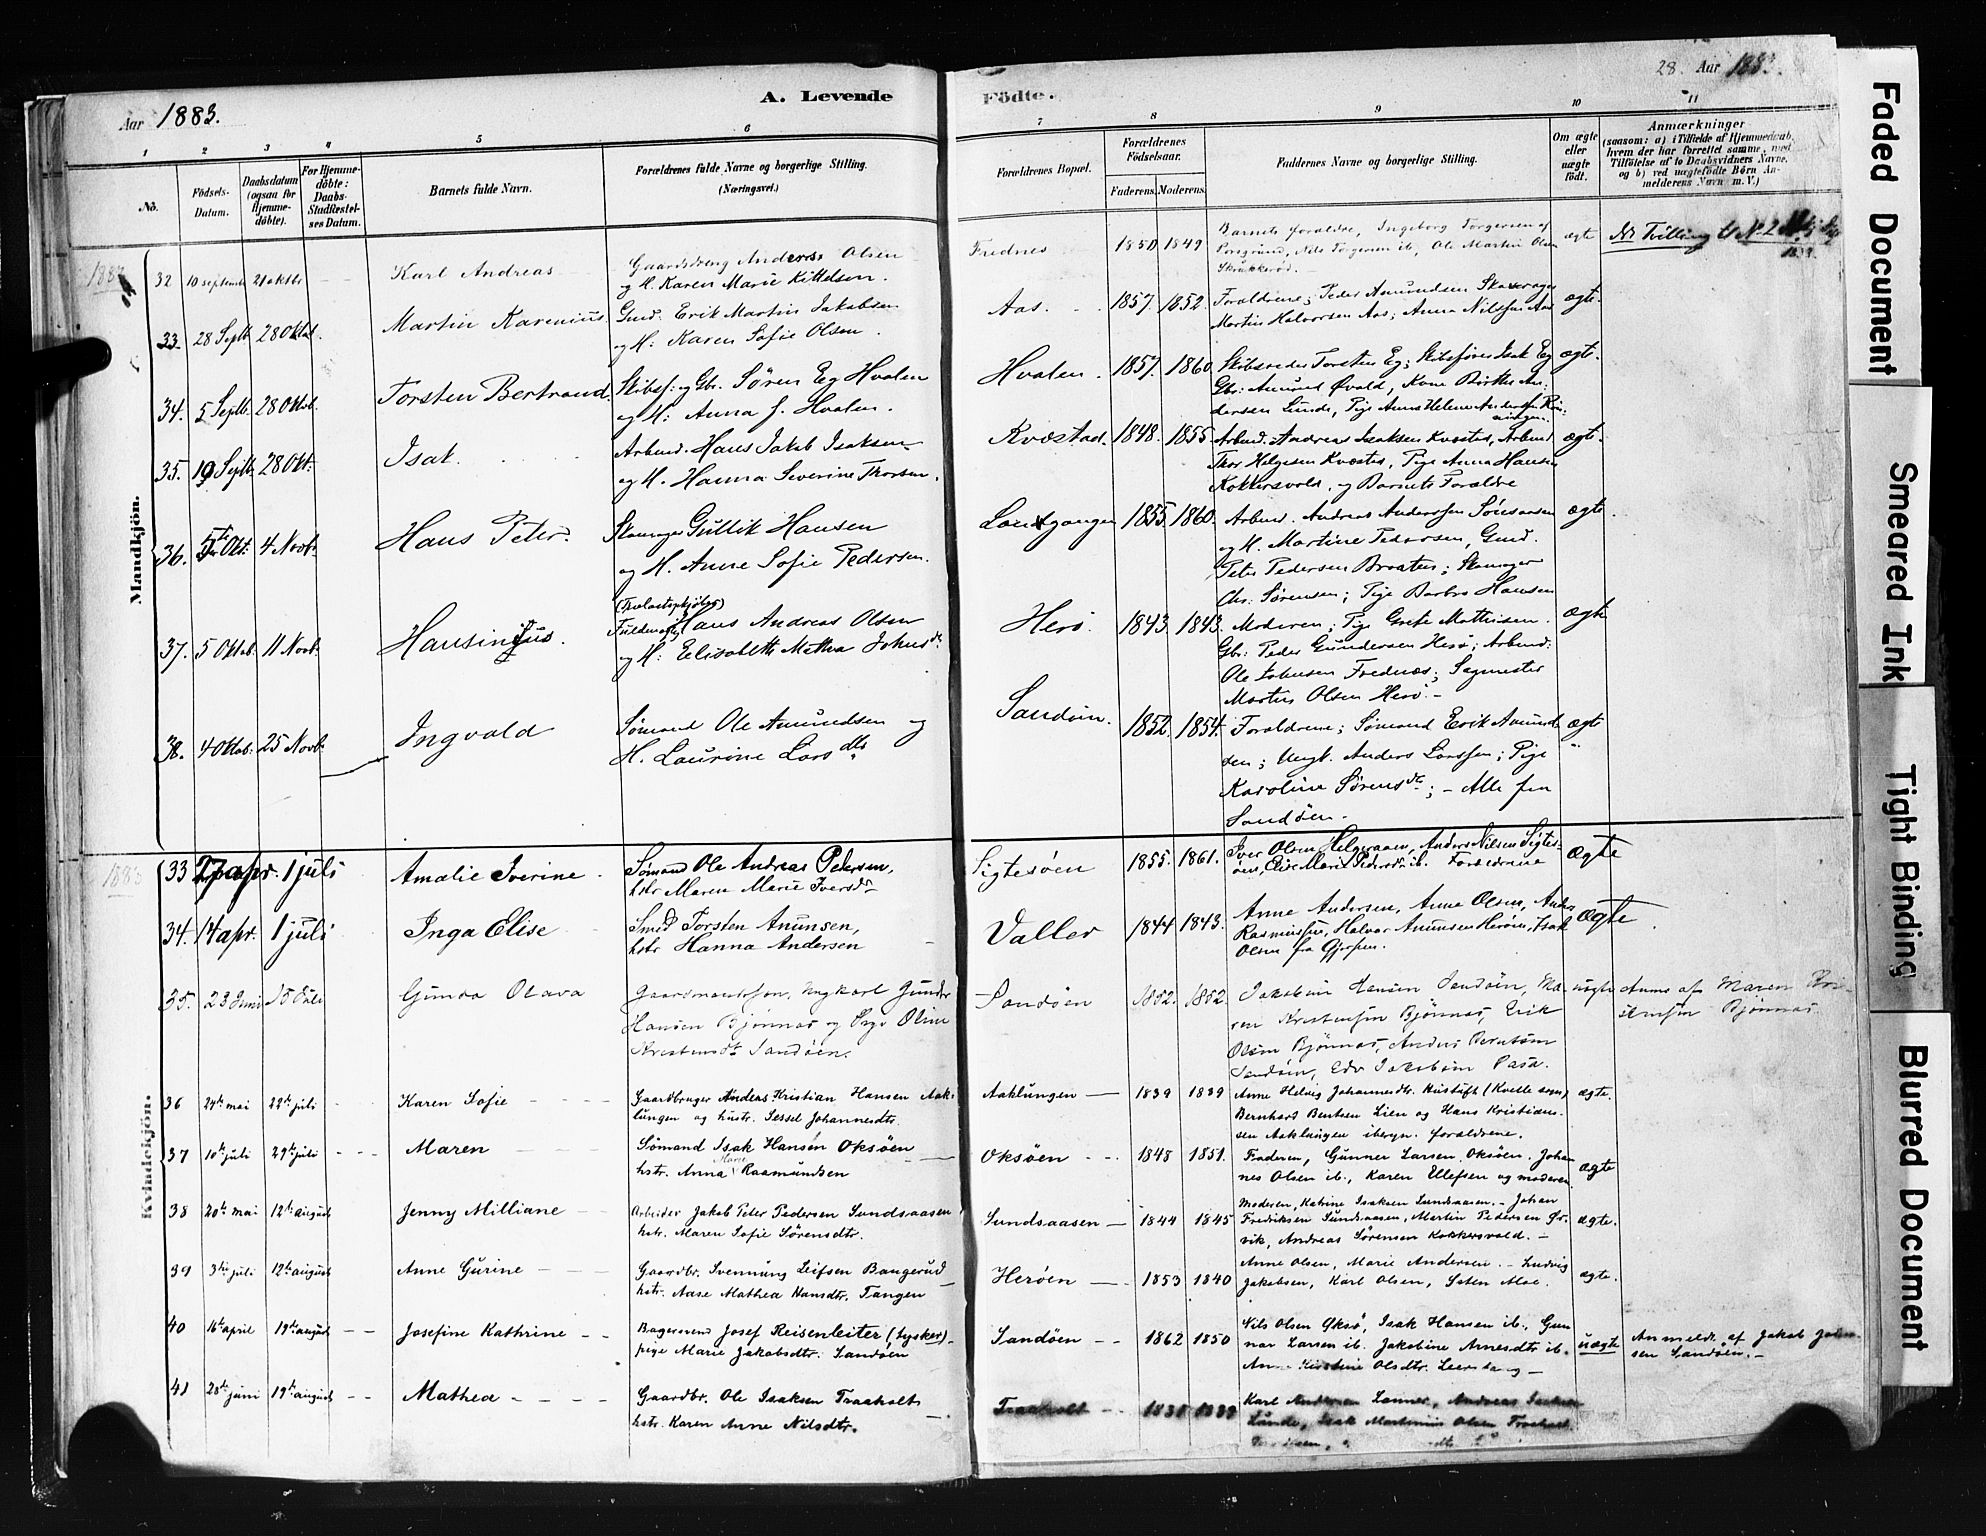 Aar 1883.
A. Levende
Födte.
28. Aar 1883.
1 2 3 4 5 6 7 8 9 10 11
No.
Födsels-
Datum.
Daabsdatum
(ogsaa for
Hjemme-
döbte).
For Hjemme-
döbte:
Daabs-
Stadfæstel-
ses Datum.
Barnets fulde Navn.
Forældrenes fulde Navne og borgerlige Stilling.
(Næringsvei.)
Forældrenes Bopæl.
Forældrenes
Födselsaar.
Faderens. Moderens.
Faddernes Navne og borgerlige Stilling.
Om ægte
eller
uægte
födt.
Anmærkninger
(saasom: a) i Tilfælde af Hjemmedaab,
hvem der har forrettet samme, med
Tilföielse af to Daabsvidners Navne,
og b) ved uægtefödte Börn An-
melderens Navn m. V.)
Mandkjön.
32 10 septemb 21 oktbr Karl Andreas
Gaardsdreng Anders Olsen
og H. Karen Marie Kittelsen.
Frednes 1850 1849
Barnets forældre, Ingeborg Torgersen af
Porsgrund, Nils Torgersen ib, Ole Martin Olsen
Skrukkerød.
ægte
Tvilling
33. 28 Septb 28 Oktob. Martin Karenius.
Gmd. Erik Martin Jakobsen
og H: Karen Sofie Olsen.
Aas. 1857. 1852.
Forældrene; Peder Amundsen Skavrager
Martin Halvorsen Aas; Anna Nilsen Aas
ægte.
34. 5 Septb. 28 Oktob. Torsten Bertrand.
Skibsf: og Gbr. Sören Eg Hvalen
og H: Anna J. Hvalen.
Hvalen. 1857. 1860.
Skibsreder Torsten Eg; Skibsfører Isak Eg
Gbr: Amund Øvald, Kone Birthe An-
dersen Lunde, Pige Anne Helene Andersen
ægte.
35. 19 Septb. 28 Okt: Isak.
Arbmd. Hans Jakob Isaksen
og H. Hanna Severine Thorsen.
Kvæstad. 1848. 1855.
Arbmd. Andreas Isaksen Kvæstad, Arbmd
Thor Helgesen Kvæstad, Pige Anna Hansen
Kokkersvold, og Barnets Forældre
ægte.
36. 5te Okt: 4 Novb. Hans Peter.
Skomager Gullik Hansen
og H. Anne Sofie Pedersen.
Langangen 1855. 1860.
Arbmd. Andreas Andersen
og H. Martine Pedersen, Gmd.
Peter Pedersen Braaten; Skomager
Chr. Sørensen; Pige Barbro Hansen
ægte.
37. 5 Oktob. 11 Novb. Hansinius.
Hans Andreas Olsen
og H: Elisabeth Mathea Johnsdt.
Herø. 1843. 1843.
Moderen; Pige Grete Mathisen.
Gbr: Peder Gundersen Herø; Arbmd:
Ole Johnsen Frednæs; Sagmester
Martin Olsen Herø. -
ægte
38. 4 Oktob. 25 Novb. Ingvald
Sømand Ole Amundsen og
H. Laurine Larsdtr.
Sandøen. 1852 1854.
Forældrene; Sømand Erik Amund-
sen; Ungk. Anders Larssen; Pige
Karoline Sørensdtr; - Alle fra
Sandøen.
ægte
Kvindekjön.
1883
33 27 apr. 1 juli Amalie Iverine
Sømand Ole Andreas Petersen,
hstr Maren Marie Iversdtr
Sigtesøen 1855. 1861.
Iver Olsen Helgeraaen, Anders Nilsen Sigtes-
øen, Elise Marie Pedersdtr ib. Forældrene
ægte
34. 14 apr. 1 juli Inga Elise
Smed Torsten Anunsen,
hstr Hanna Andersen
Valler 1844 1843.
Anne Andersen, Anne Olsen, Anders
Rasmussen, Halvor Anunsen Herøen, Isak
Olsen fra Gjerpen.
ægte
35. 23 Juni 15 Juli Gunda Olava
Gaardmandssøn, Ungkarl Gunder
Hansen Bjønnæs og Pige Oline
Kristensdt Sandøen.
Sandøen 1852. 1852.
Jakobine Hansen Sandøen, Ma-
ren Kristensen Bjønnæs, Erik
Olsen Bjønnæs, Anders Berntsen
Sandøen, Edv Jakobsen
uægte
Anm. af Maren Kri-
stensen Bjønnæs.
36 24de mai 22de juli Karen Sofie
Gaardbruger Andreas Kristian Hansen Aak-
lungen og hustr. Sessel Johannesdtr.
Aaklungen 1839 1839
Anne Helvig Johannesdtr. Hustuft (Kvelle sogn)
Bernhard Bentsen Lien og Hans Kristian-
sen Aaklungen ibergn. forældrene.
ægte.
37 10de juli 29de juli Maren
Sømand Isak Hansen Oksøen
hstr. Anna Marie Raamundsen
Oksøen 1848 1851.
Faderen, Gunner Larsen Oksøen. Johan-
nes Olsen ib., Karen Ellefsen og moderen
ægte
38 20de mai 12te august Jenny Milliane
Arbeider Jakob Peter Pedersen Sundsaasen
hstr. Maren Sofie Sørensdtr.
Sundsaasen 1844 1845
Moderen, Katrine Isaksen Sundsaasen. - Johan
Fredriksen Sundsaasen, Martin Pedersen Ør-
vik, Andreas Sørensen Kokkersvold. -
ægte.
39 3die juli 12te august Anne Gurine
Gaardbr. Svennung Leifsen Bangerud
hstr. Aase Mathea Hansdtr. Tangen
Herøen 1853 1840
Anne Olsen, Marie Andersen. - Ludvig
Jakobsen, Karl Olsen, Sten Moe.
ægte.
40 16de april 19de august Josefine Kathrine
Bagersvend Josef Reisenleiter (tysker)
pige Marie Jakobsdtr. Sandøen
Sandøen 1862 1850
Nils Olsen Oksø, Isak Hansen ib., Gun-
nar Larsen ib. Jakobine Arnesdtr ib.
Anne Kirstine Olsdtr.
uægte
Anmeldt af Jakob Johan-
sen Sandøen. -
41 28de juni 19de august Mathea
Gaardbr. Ole Isaksen Traaholt
hstr. Karen Anne Nilsdtr.
Traaholt 1831 1839
Karl Andersen Andreas Isaksen
Lunde, Isak Martinius Olsen Traaholt
Faded Document
Smeared Ink
Tight Binding
Blurred Document